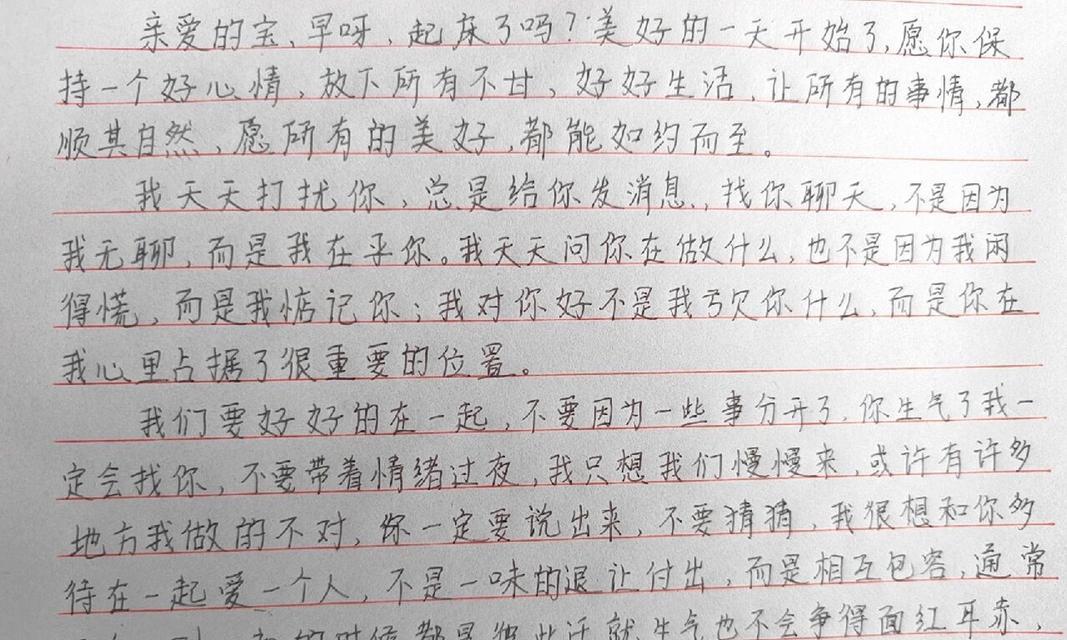 亲爱的宝、早呀、起床了吗?美好的一天开始了,愿你保
持一个好心情,放下所有不甘,好好生活、让所有的事情,都
顺其自然,愿所有的美好,都能如约而至。
我天天打扰你,总是给你发消息,找你聊天,不是因为
我无聊,而是我在乎你。我天天问你在做什么,也不是因为我闲
得慌,而是我惦记你;我对你好不是我亏欠你什么,而是你在
我心里占据了很重要的位置。
我们要好好的在一起,不要因为一些事分开了,你生气了我一
定会找你,不要带着情绪过夜,我只想我们慢慢来,或许有许多
地方我做的不对,你一定要说出来,不要猜猜,我很想和你多
待在一起爱一个人,不是一味的退让付出,而是相互包容,通常
的时候都是彼此活就生气也不会争得面红耳赤,